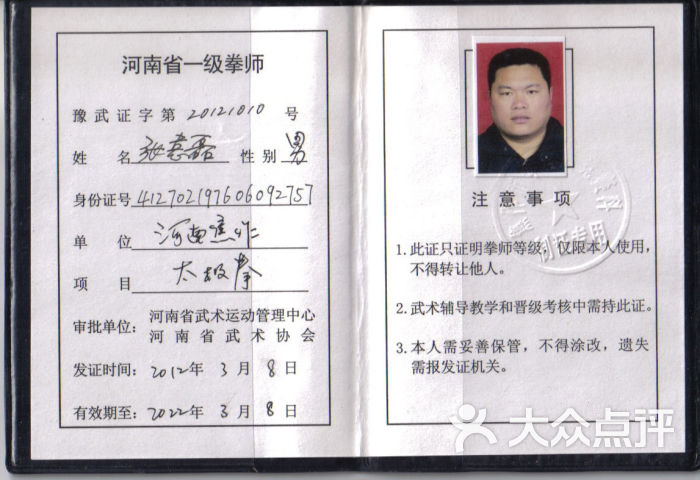 河南省一级拳师
豫武证字第 20121010 号
姓名 张意磊 性别 男
身份证号 412702197606092757
单位 河南焦作
项目 太极拳
审批单位：河南省武术运动管理中心
河南省武术协会
发证时间：2012年 3月 8日
有效期至：2022年 3月 8日
注意事项
1. 此证只证明拳师等级，仅限本人使用，
不得转让他人。
2. 武术辅导教学和晋级考核中需持此证。
3. 本人需妥善保管，不得涂改，遗失
需报发证机关。
大众点评